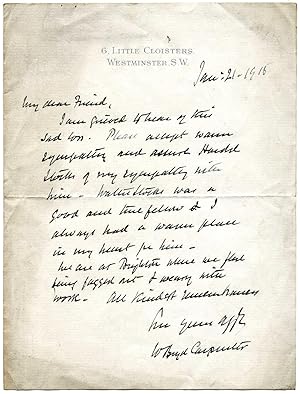 6, LITTLE CLOISTERS,
WESTMINSTER. S.W.
Jan: 21 - 1916
My dear Friend,
I am grieved to hear of this
sad loss. Please accept warm
sympathy and assure Harold
Stocks of my sympathy with
him - Walter Stocks was a
good and true fellow & I
always had a warm place
in my heart for him -
We are at Brighton where we
being fagged out & weary with
work - All kindest remembrances
Ever yours affly
W Boyd Carpenter